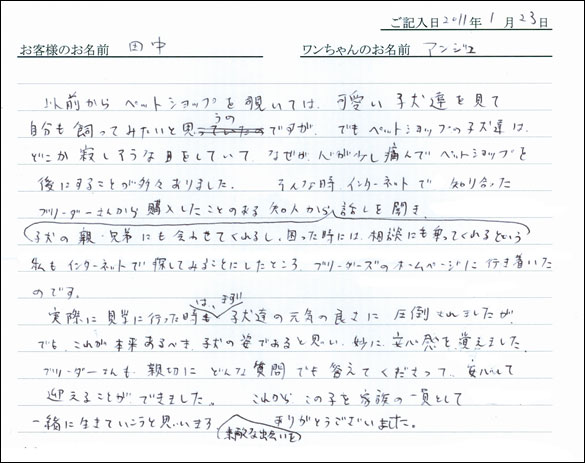 ご記入日2011年1月23日
お客様のお名前 田中 ワンちゃんのお名前 アンジュ
以前からペットショップを覗いては、可愛い子犬達を見て
自分も飼ってみたいと思うのですが、でもペットショップの子犬達は、
どこか寂しそうな目をしていて、なぜか心が少し痛んでペットショップを
後にすることが多々ありました。 そんな時、インターネットで知り合った
ブリーダーさんから購入したことのある知人から話しを聞き、
子犬の親・兄弟にも会わせてくれるし、困った時には、相談にも乗ってくれるという
私もインターネットで探してみることにしたところ、ブリーダーズのホームページに行き着いた
のです。
実際に見学に行った時は、まず子犬達の元気の良さに圧倒されましたが、
でも、これが本来あるべき、子犬の姿であると思い、妙に、安心感を覚えました。
ブリーダーさんも、親切にどんな質問でも答えてくださって、安心して
迎えることができました。 これからこの子を家族の一員として
一緒に生きていこうと思います。素敵な出会いをありがとうございました。